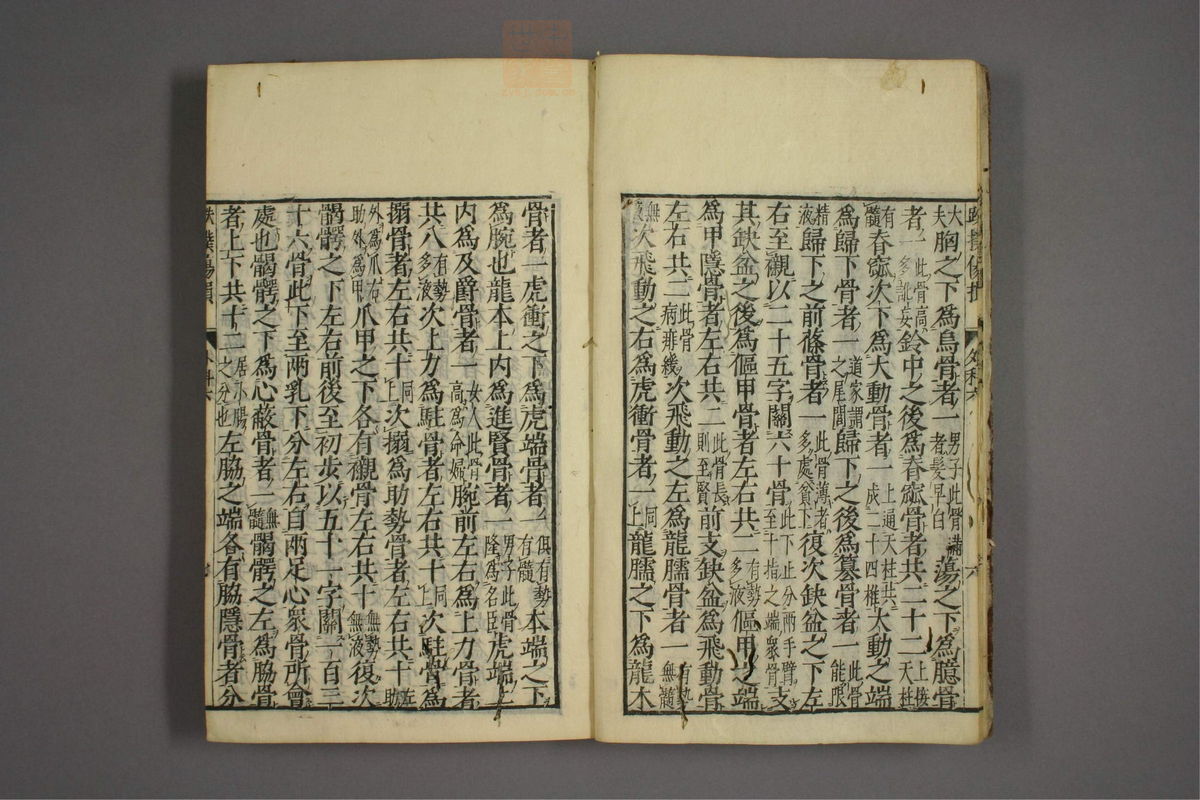 跌撲傷損 外科六 六
大夫胸之下為烏骨者一男子此骨滿者髮早白蕩之下為臆骨
者一此骨高多訛妄鈴中之後為脊窳骨者共二十二上接天柱
有髓脊窳次下為大動骨者一上通天柱共成二十四椎大動之端
為歸下骨者一道家謂之尾閭歸下之後為篡骨者一此骨能限
精液歸下之前蓧骨者一此骨薄者多處貧下復次缺盆之下左
右至襯以二十五字關六十骨此下止分兩手臂至十指之端眾骨支
其缺盆之後為傴甲骨者左右共二有勢多液傴甲之端
為甲隱骨者左右共二此骨長則至賢前支缺盆為飛動骨
左右共二此骨病痱緩次飛動之左為龍臑骨者一有勢無髓
無液次飛動之右為虎衝骨者一同上龍臑之下為龍本
骨者一虎衝之下為虎端骨者一俱有勢有髓本端之下
為腕也龍本上內為進賢骨者一男子此骨隆為名臣虎端上
內為及爵骨者一女人此骨高為命婦腕前左右為上力骨者
共八有勢多液次上力為駐骨者左右共十同上次駐骨為
搦骨者左右共十同上次搦為助勢骨者左右共十左助
外為爪右助外為甲爪甲之下各有襯骨左右共十無勢無液復次
𩩲骬之下左右前後至初步以五十一字關一百三
十六骨此下至兩乳下分左右自兩足心眾骨所會
處也𩩲骬之下為心蔽骨者一無髓𩩲骬之左為脇骨
者上下共十二居小腸之分也左脇之端各有脇隱骨者分
跌撲傷損 外科六